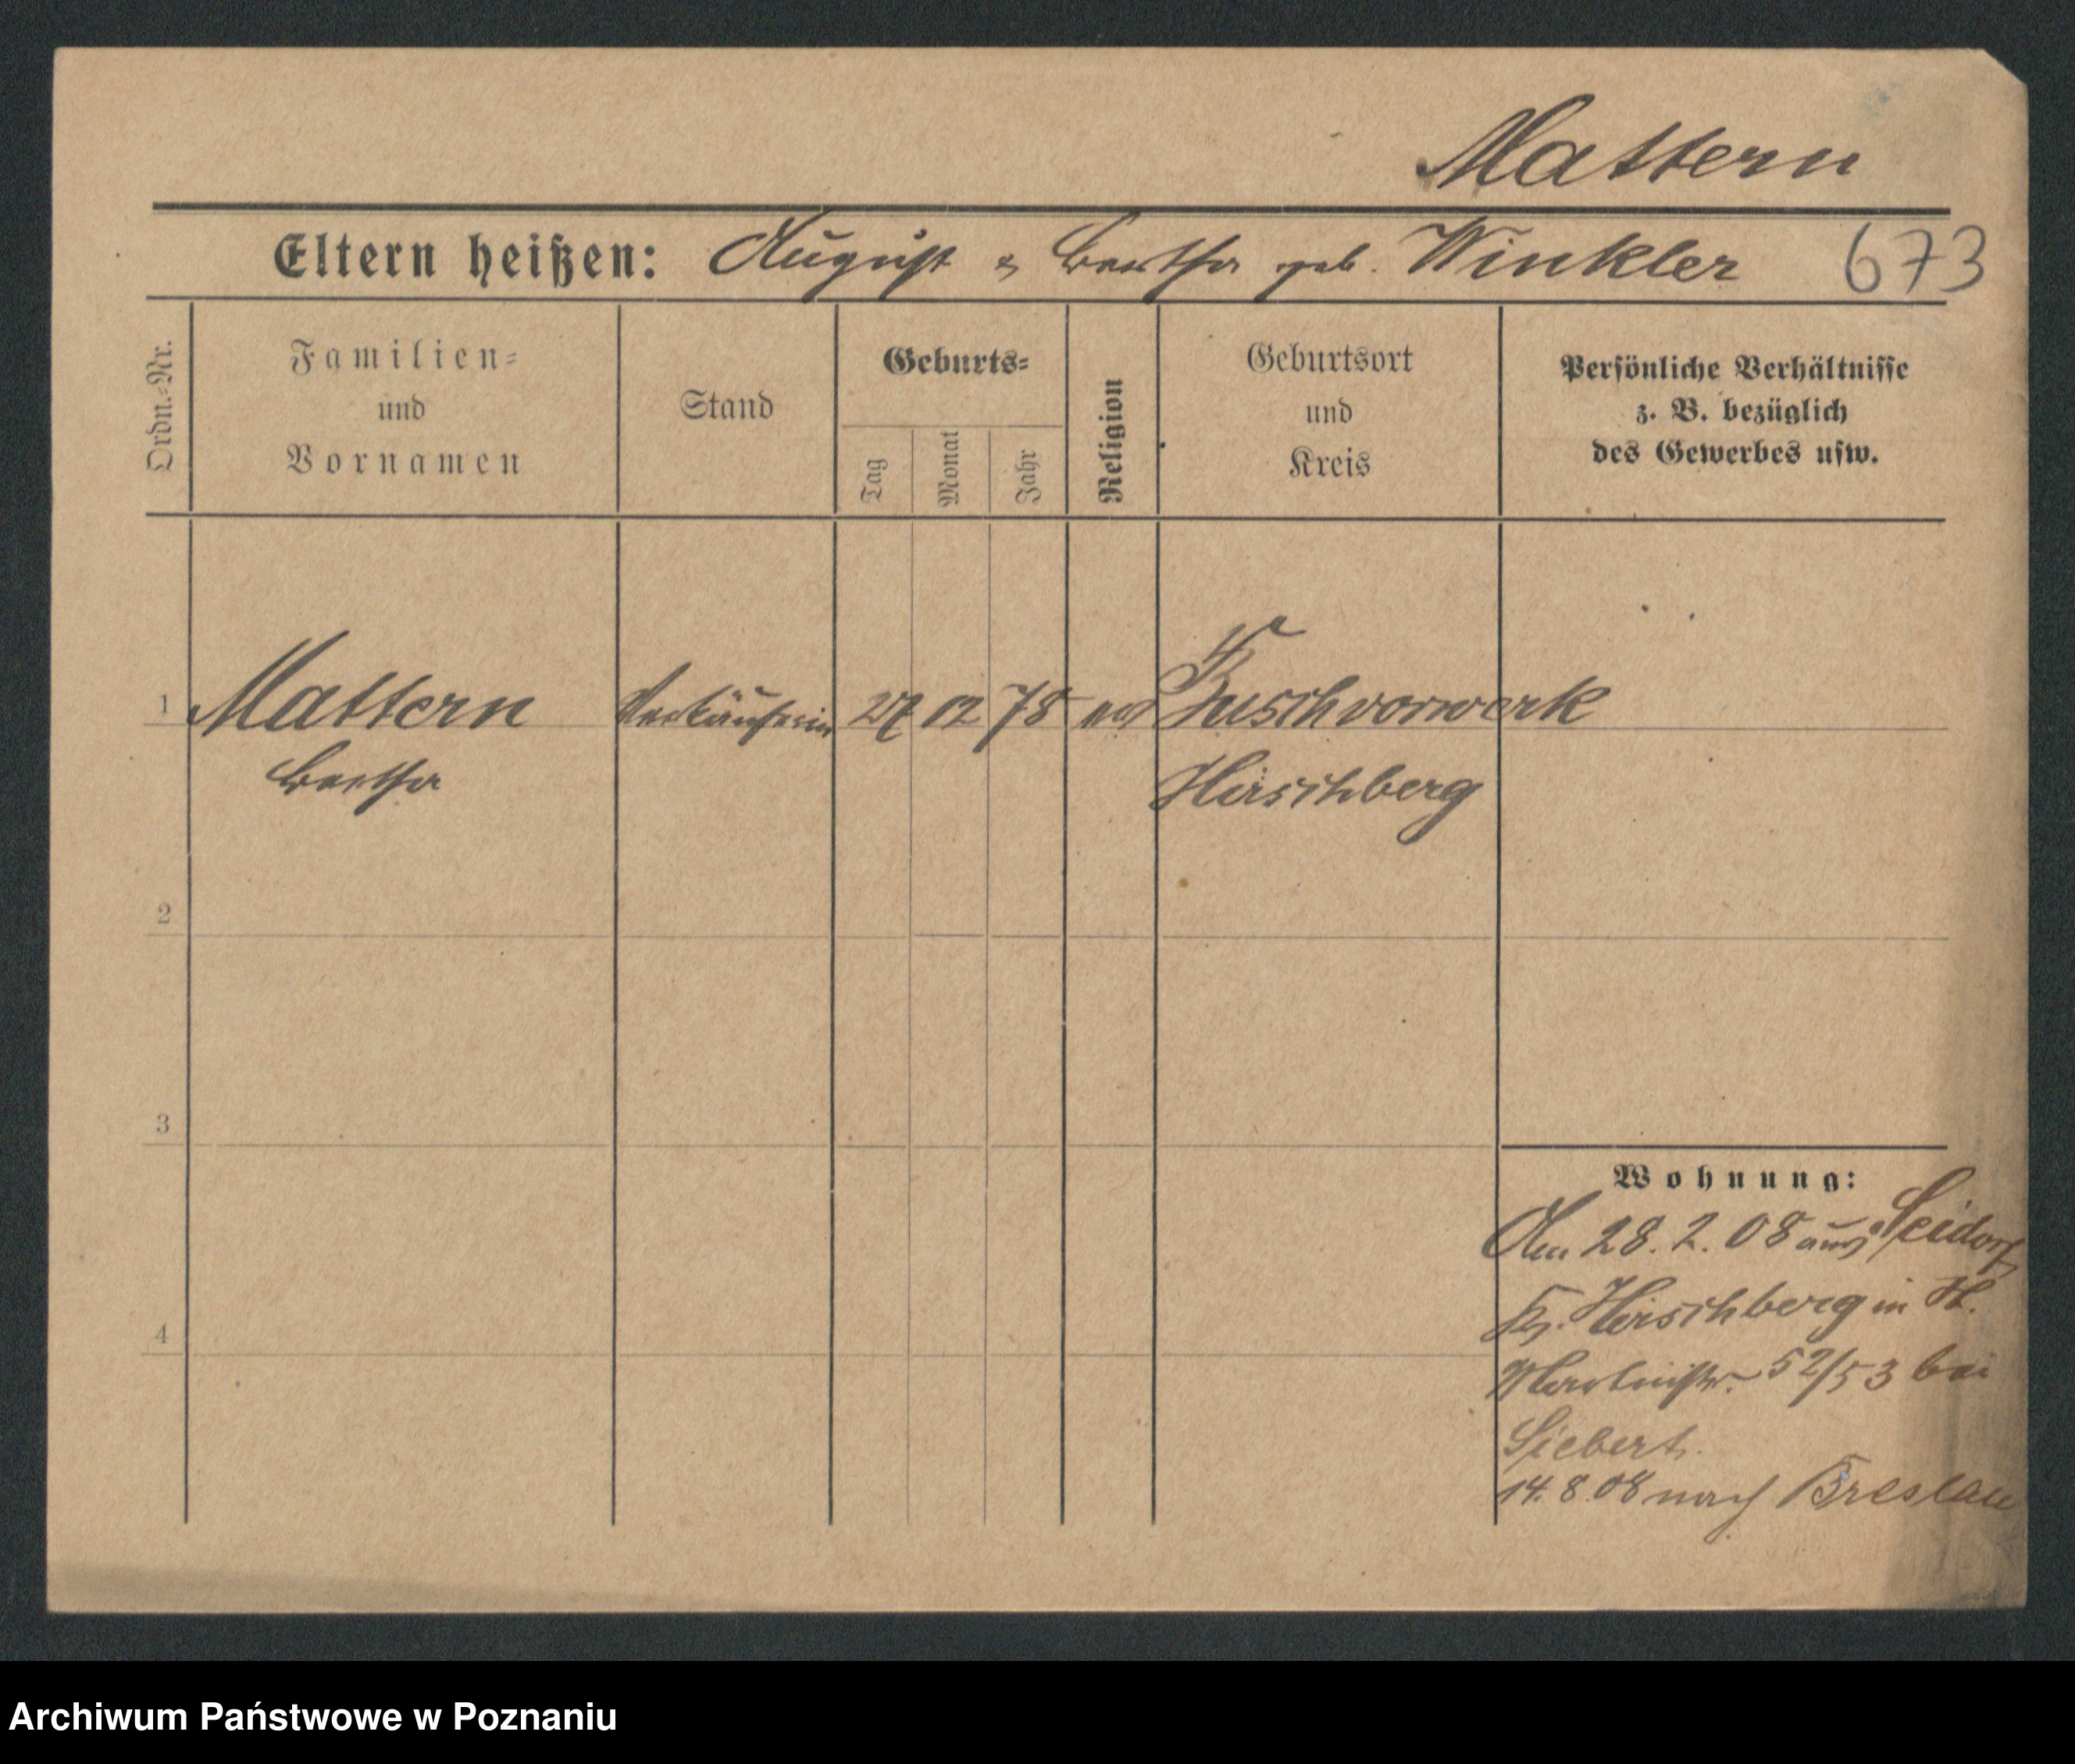 Mattern
Eltern heißen: August & Bertha geb. Winkler 673
Ordn.-Nr.
Familien-
und
Vornamen
Stand
Geburts-
Tag
Monat
Jahr
Religion
Geburtsort
und
Kreis
Persönliche Verhältnisse
z. B. bezüglich
des Gewerbes usw.
1 Mattern Verkäuferin 27 12 78 Buschvorwerk
Bertha Hirschberg
2
3
4
Wohnung:
Am 28. 2. 08 aus Seidorf
Kr. Hirschberg in
52/53 bei
Siebert.
14. 8. 08 nach Breslau
Archiwum Państwowe w Poznaniu